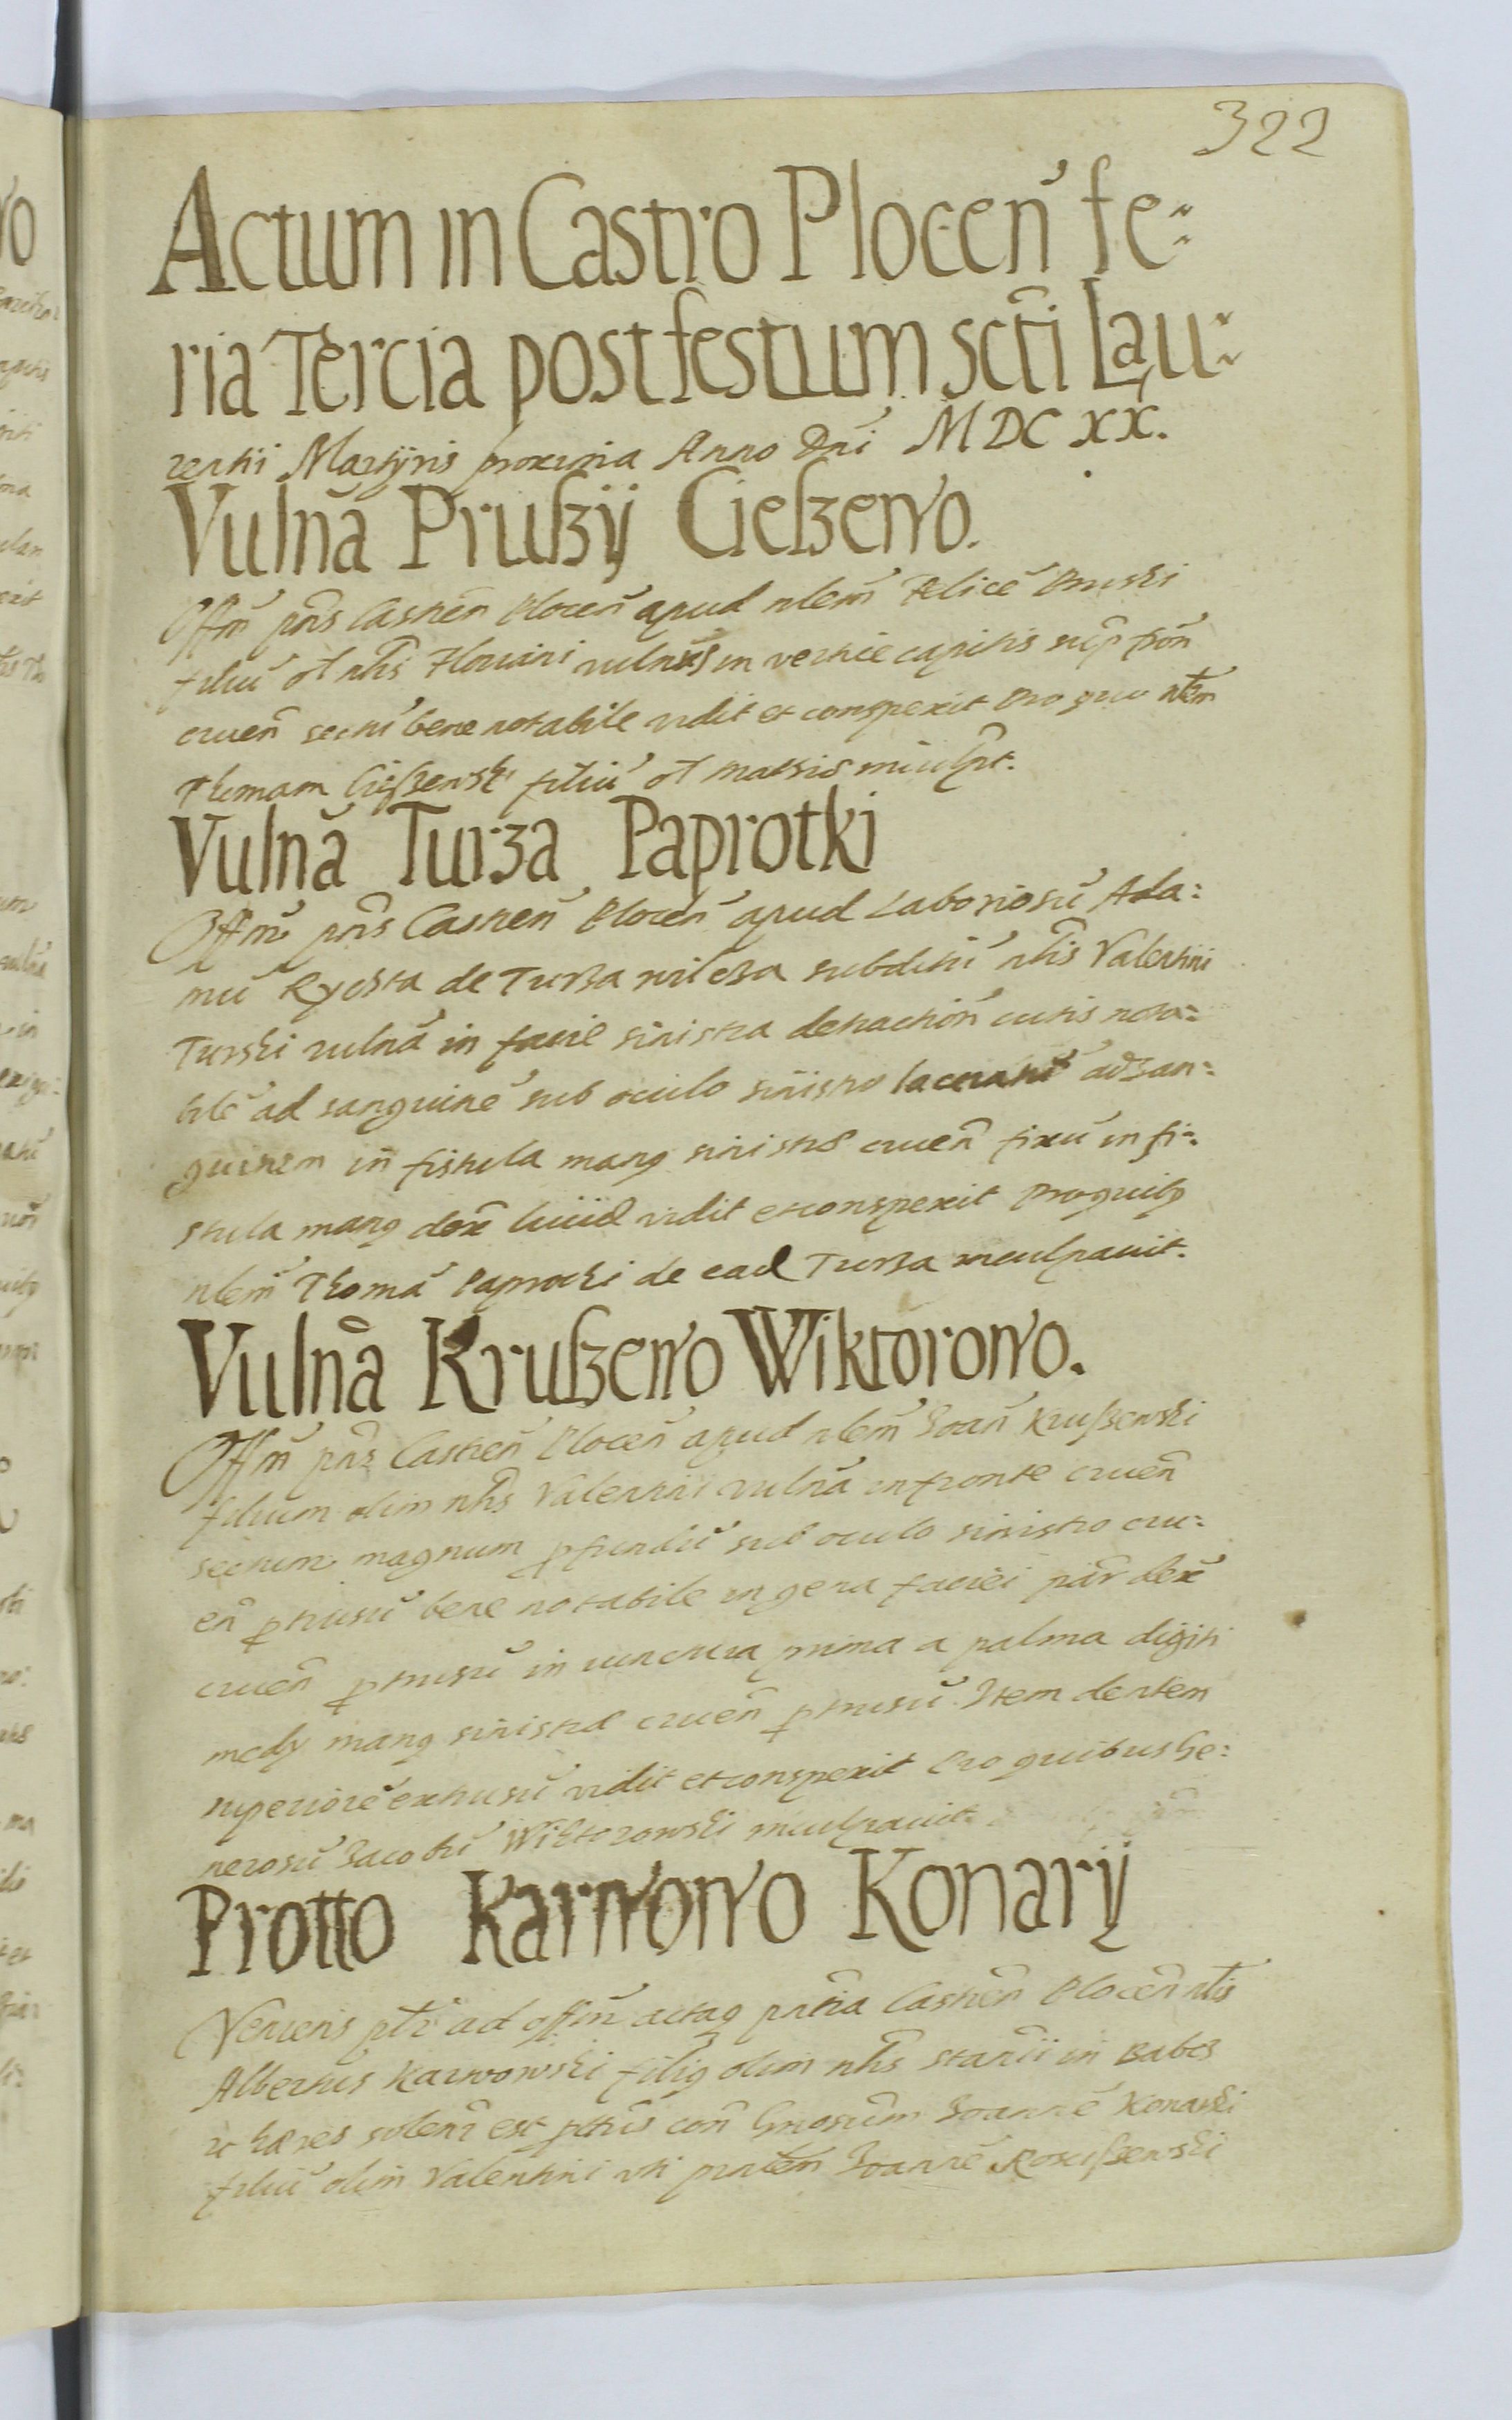 322
Actum in Castro Plocen̄ fe:
ria Tercia post festum scti Lau:
rentii Martyris proxima Anno Dni MDCXX.
Vulna Prußÿ Cießewo.
Offm pns Castren Plocen apud nlem Felice Pruski
filiu ol nhis Floriani vulnus in vertice capitis
cruen sectu bene notabile vidit et conspexit Pro quo nlem
Thomam Cießewski filiu ol inculpt.
Vulna Turza Paprotki
Offm pns Castren Plocen apud Laboriosu Ada:
mu de Turza subditu nhis Valentini
Turski vulna in facie sinistra detraction cutis nota:
bile ad sanguine sub oculo sinistro laceratu ad san:
guinem in fistula mang sinistre cruen fixu in fi:
stula mang dex livid vidit et conspexit Pro quib
nlem Thoma Paprocki de ead Turza inculpavit.
Vulna Krußewo Wiktorowo.
Offm pns Castren Plocen apud nlem Joan Krußewski
filium olim nhis Valentini vulna in fronte cruen
sectum magnum pfundu sub oculo sinistro cru:
en ptusu bene notabile in gena faciei par dex
cruen ptusu in iunctura prima a palma digiti
medy mang sinistre cruen ptusu Item dentem
superiore extrusu vidit et conspexit Pro quibus Ge:
nerosu Jacobu Wiktorowski inculpavit.
Protto Karwowo Konarÿ
Veniens ad offm actaq pntia Castren Plocen nlis
Albertus Karwowski filiq olim nhis Stanii in
filiu olim Valentini uti Joanne